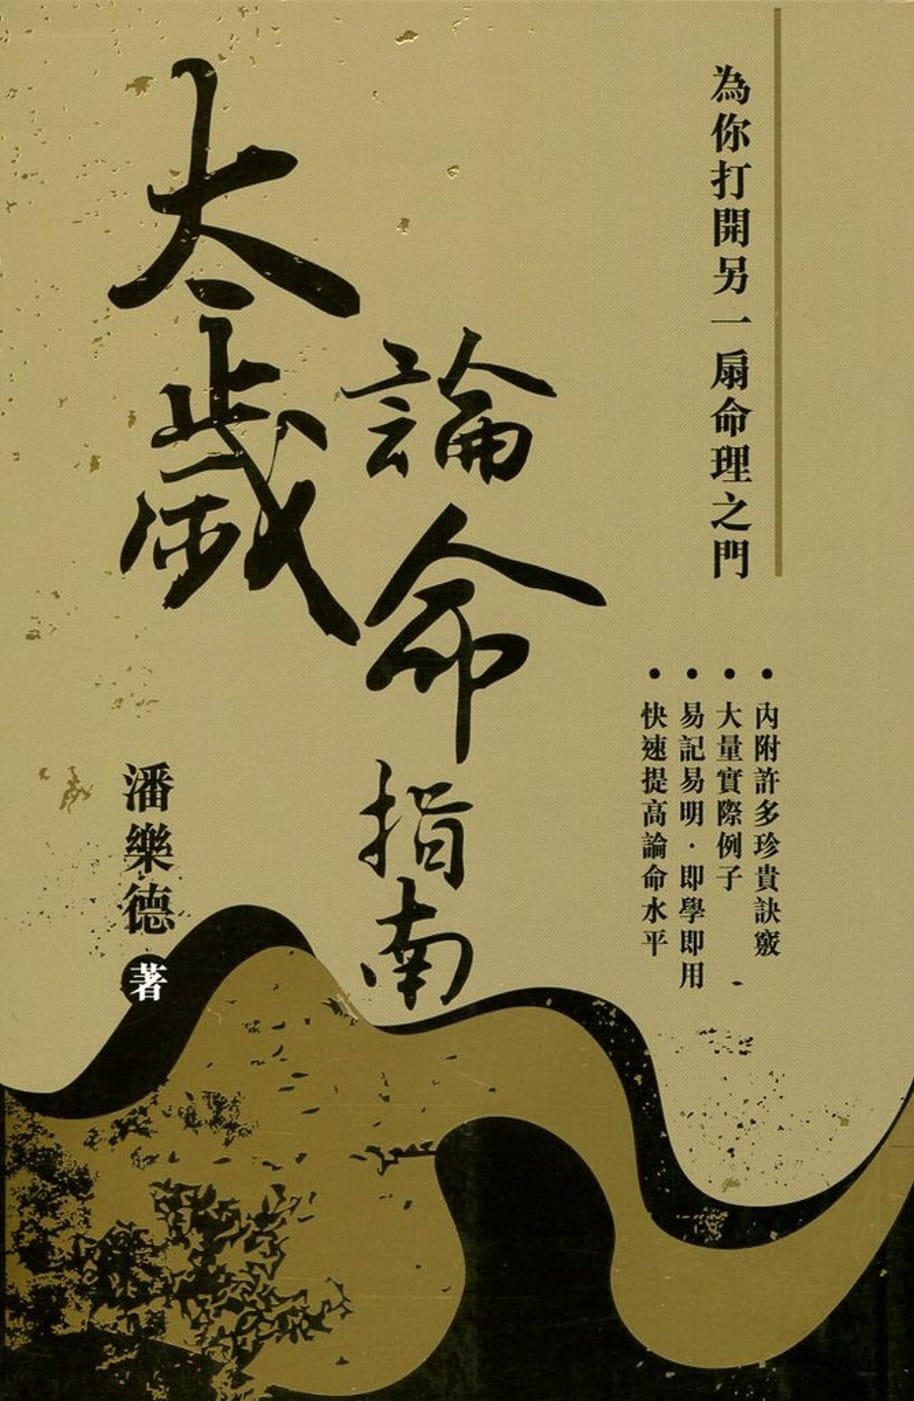 為你打開另一扇命理之門
內附許多珍貴訣竅
大量實際例子
易記易明·即學即用
快速提高論命水平
太歲
論命
指南
潘樂德 著